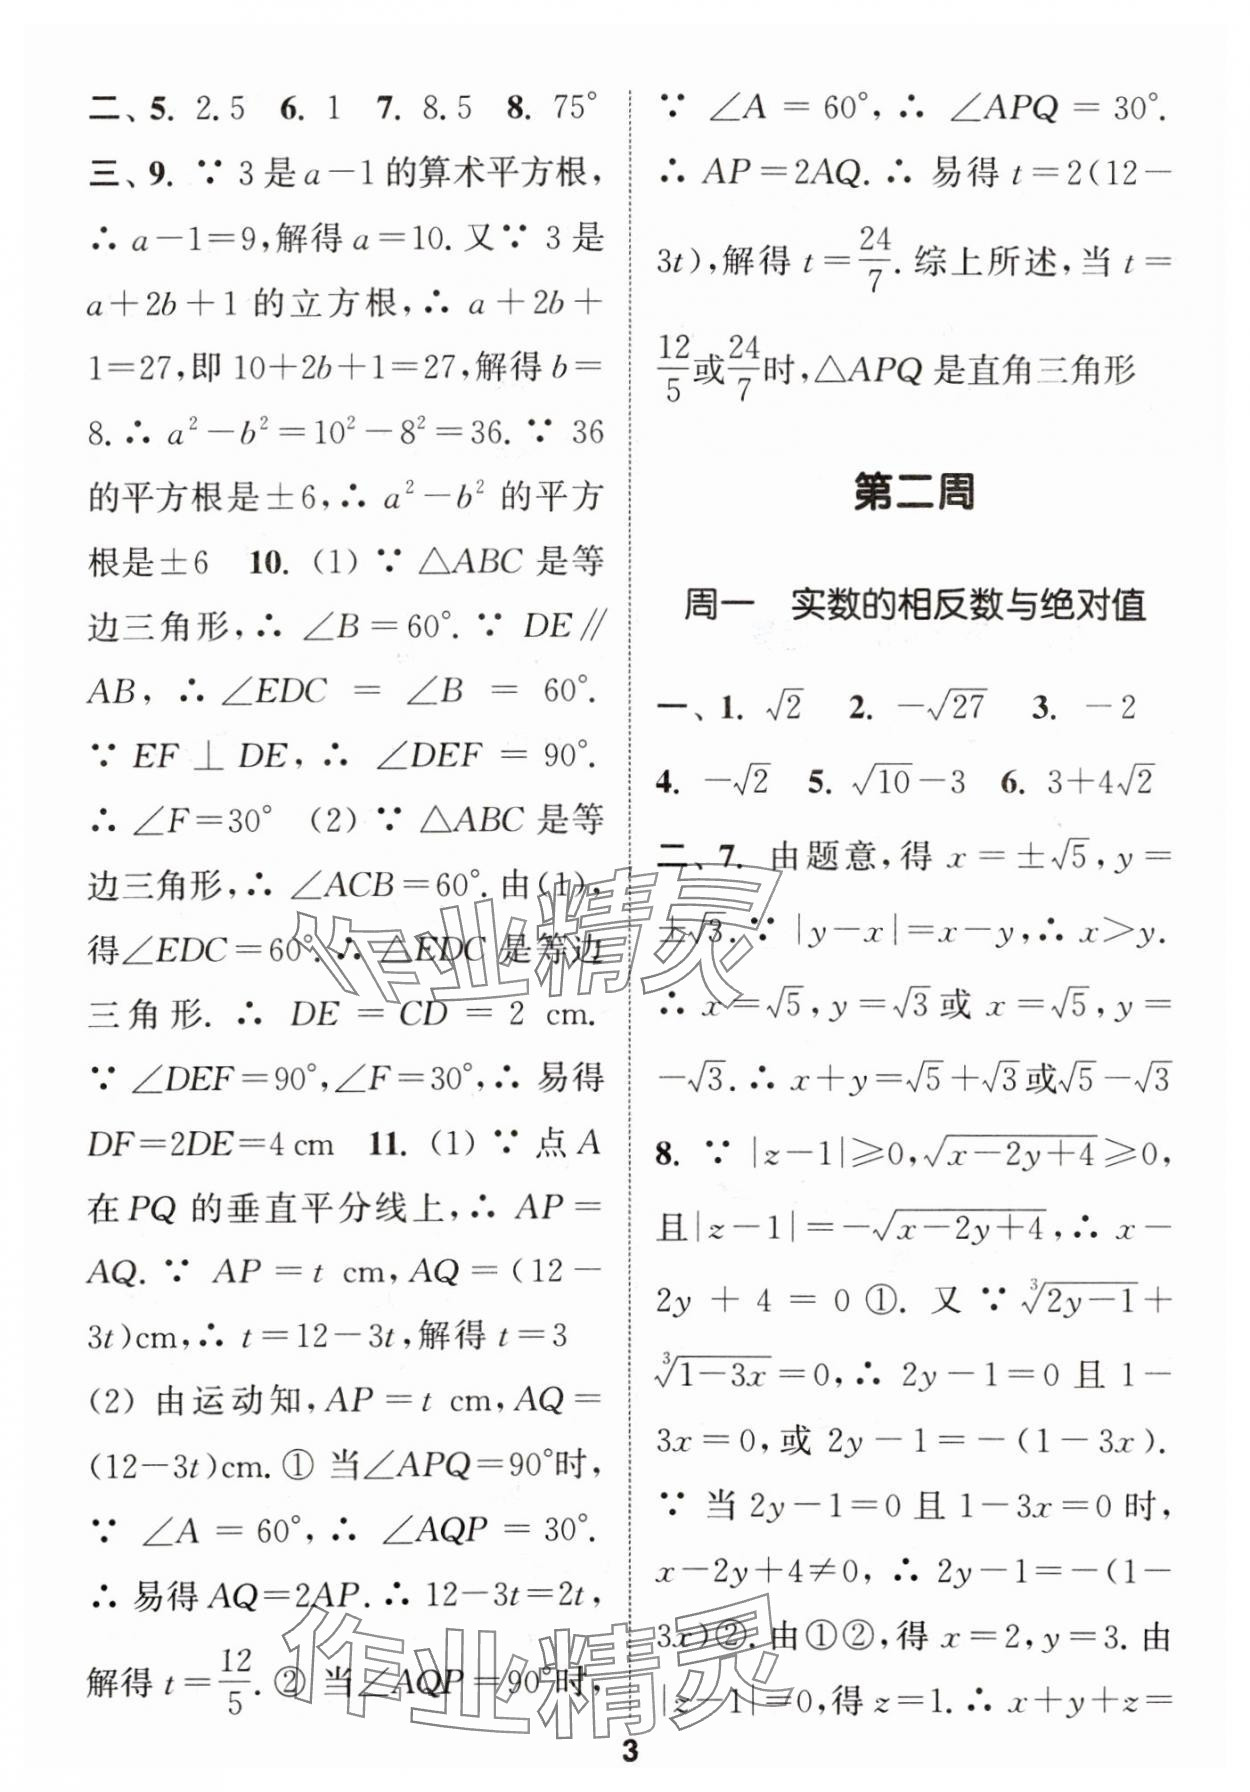 二、5. 2.5　6. 1　7. 8.5　8. 75°
三、9. ∵ 3是a－1的算术平方根,
∴ a－1=9,解得a=10. 又∵ 3是
a＋2b＋1 的立方根,∴ a＋2b＋
1=27,即10+2b+1=27,解得b=
8. ∴ a²－b²=10²－8²=36. ∵ 36
的平方根是±6,∴ a²－b² 的平方
根是±6　10. (1) ∵ △ABC 是等
边三角形,∴ ∠B=60°. ∵ DE∥
AB, ∴ ∠EDC = ∠B = 60°.
∵ EF⊥DE, ∴ ∠DEF = 90°.
∴ ∠F=30°　(2) ∵ △ABC 是等
边三角形,∴ ∠ACB=60°. 由(1),
得∠EDC=60°. ∴ △EDC 是等边
三角形. ∴ DE = CD = 2 cm.
∵ ∠DEF=90°,∠F=30°,∴ 易得
DF=2DE=4 cm　11. (1) ∵ 点A
在PQ 的垂直平分线上,∴ AP=
AQ. ∵ AP=t cm, AQ=(12－
3t)cm,∴ t=12－3t,解得t=3
(2) 由运动知,AP=t cm,AQ=
(12－3t)cm. ① 当∠APQ=90°时,
∵ ∠A = 60°, ∴ ∠AQP = 30°.
∴ 易得AQ=2AP. ∴ 12－3t=2t,
解得t=12/5. ② 当∠AQP=90°时,
∵ ∠A = 60°, ∴ ∠APQ = 30°.
∴ AP=2AQ. ∴ 易得 t=2(12－
3t),解得 t=24/7. 综上所述,当 t=
12/5或24/7时,△APQ 是直角三角形
第二周
周一　实数的相反数与绝对值
一、1. √2　2. －√27　3. －2
4. －√2　5. √10－3　6. 3＋4√2
二、7. 由题意,得 x=±√5,y=
±√3. ∵ |y－x|=x－y,∴ x>y.
∴ x=√5,y=√3或 x=√5,y=
－√3. ∴ x+y=√5+√3或√5－√3
8. ∵ |z－1|≥0,√(x－2y+4)≥0,
且|z－1|=－√(x－2y+4),∴ x－
2y + 4 = 0 ①. 又 ∵ ∛(2y－1)+
∛(1－3x)=0,∴ 2y－1=0 且 1－
3x=0,或 2y－1=－(1－3x).
∵ 当 2y－1=0 且 1－3x=0 时,
x－2y+4≠0, ∴ 2y－1=－(1－
3x)②. 由①②,得 x=2,y=3. 由
|z－1|=0,得 z=1. ∴ x+y+z=
3
作业精灵
作业精灵